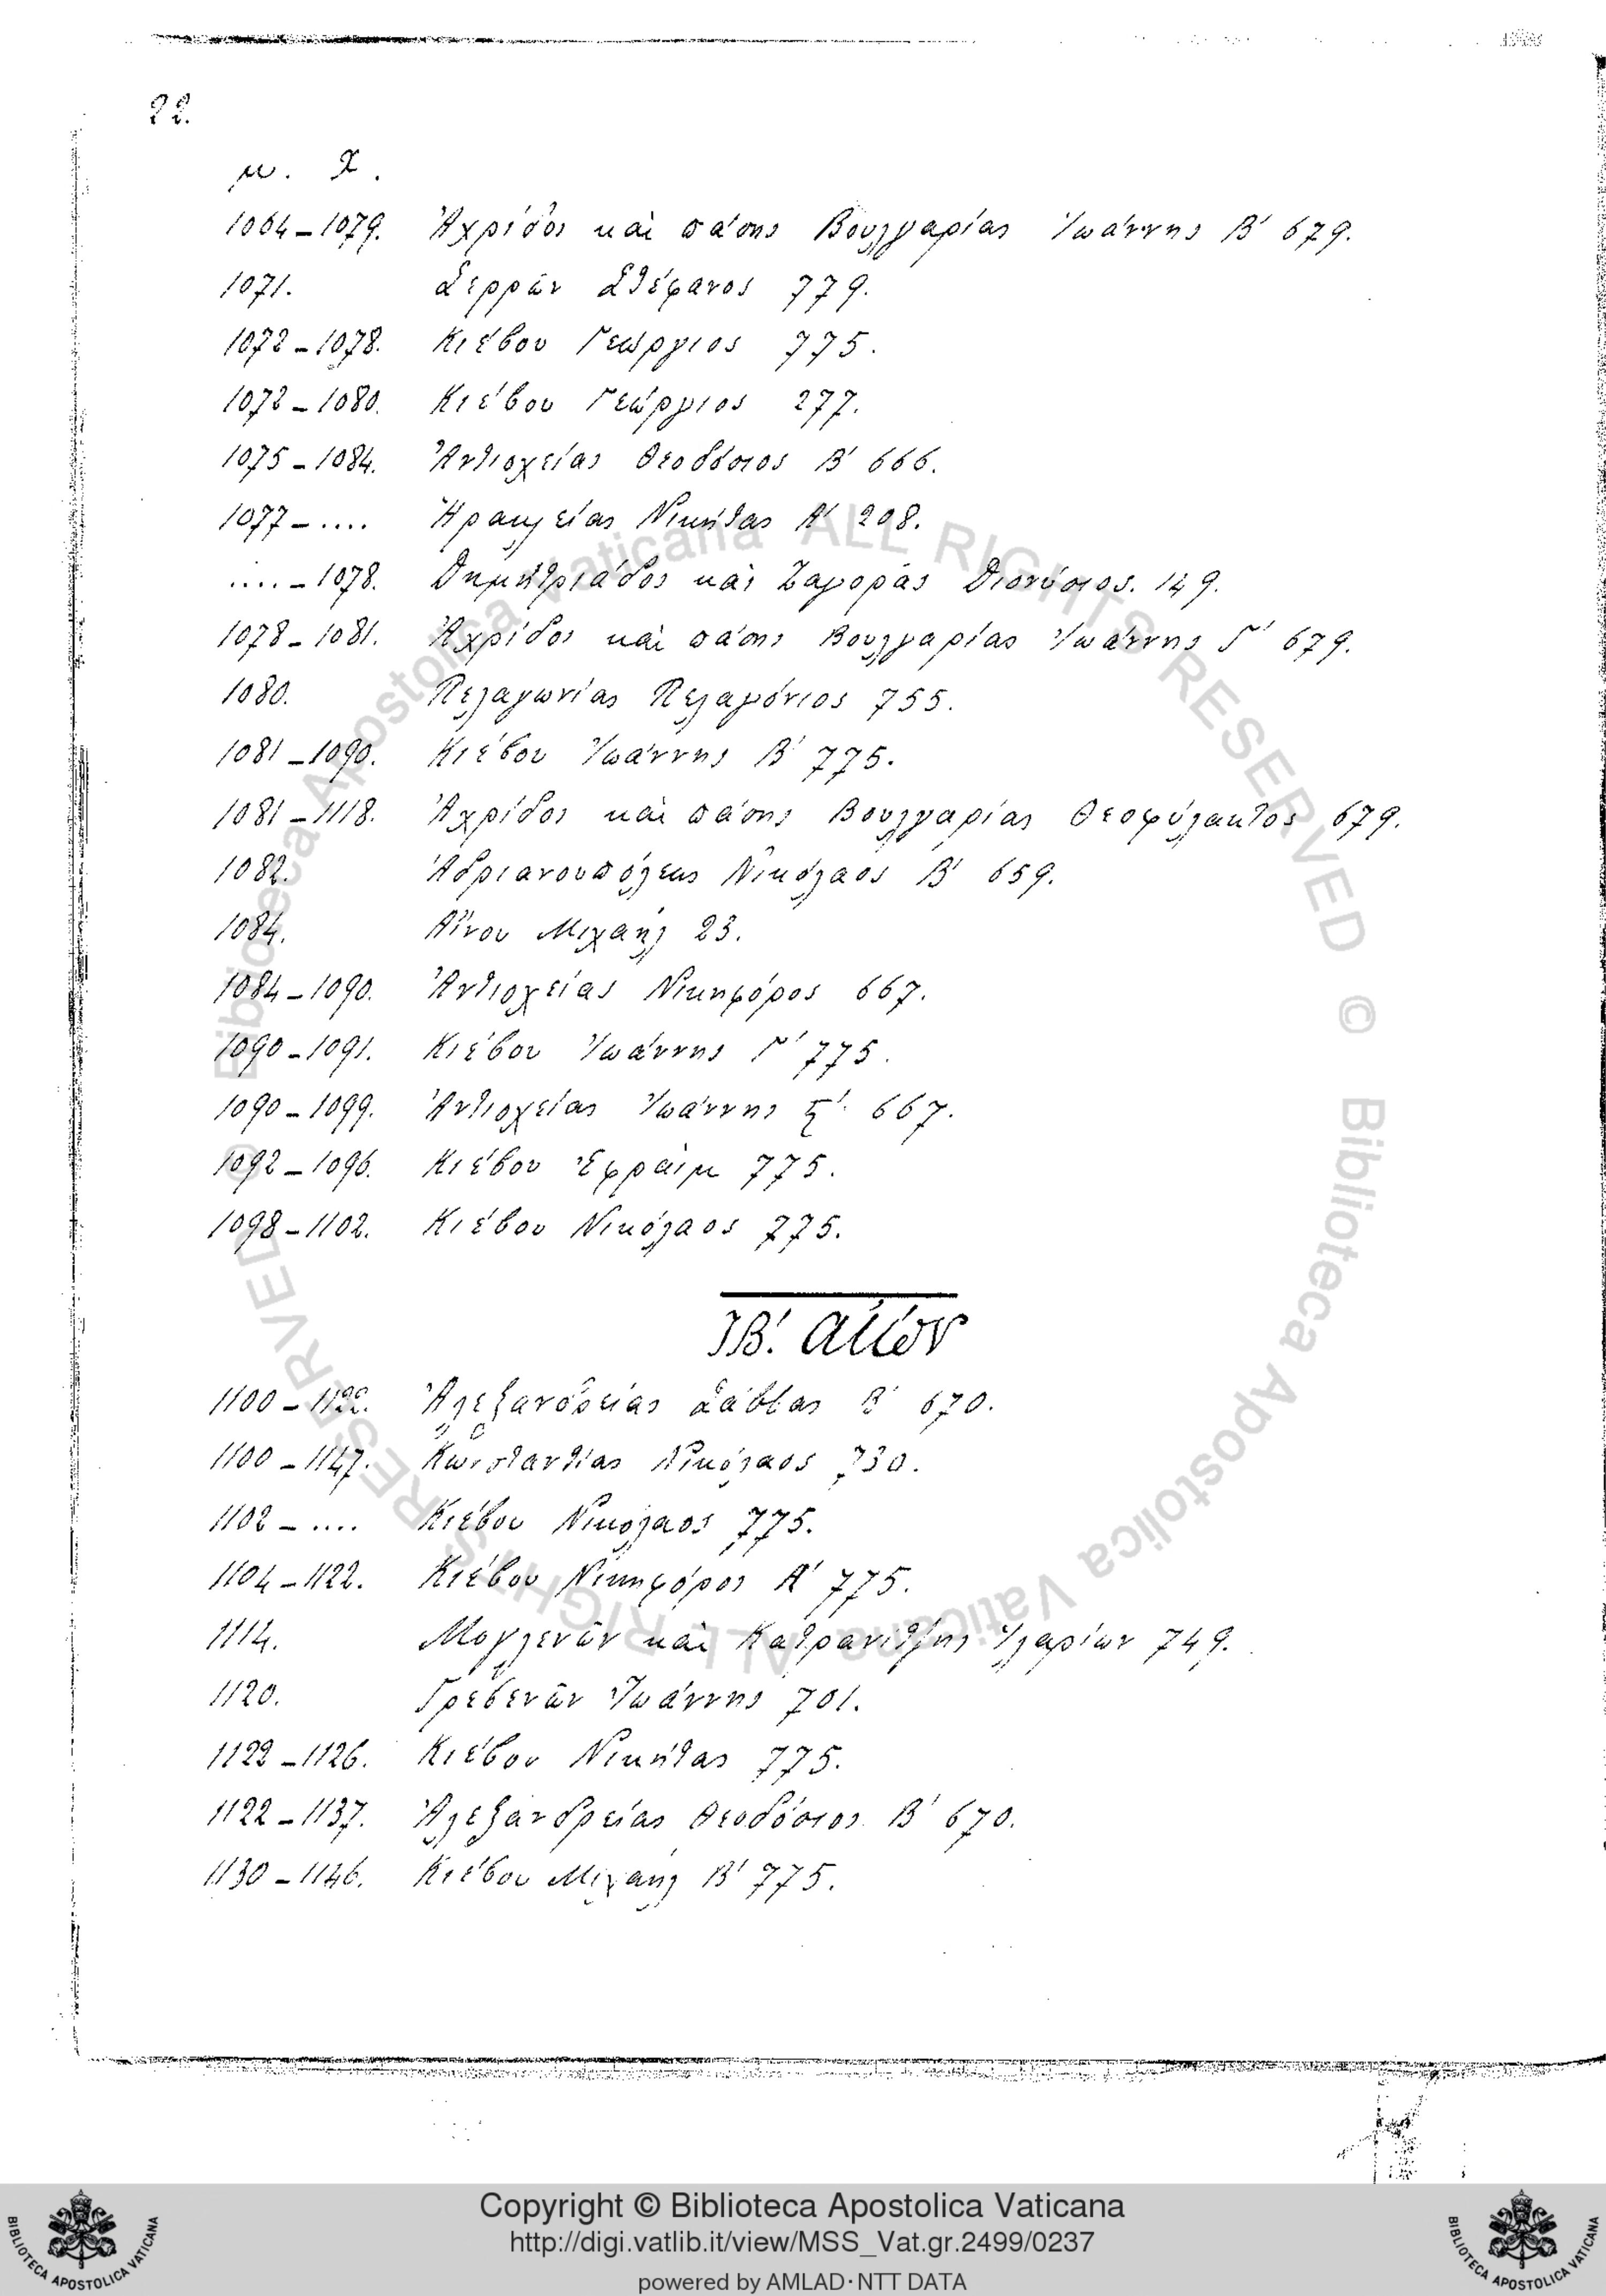 22.
μ. Χ.
1064–1079. Ἀχρίδος καὶ πάσης Βουλγαρίας Ἰωάννης Β΄ 679.
1071. Σερρῶν Στέφανος 779.
1072–1078. Κιέβου Γεώργιος 775.
1072–1080. Κιέβου Γεώργιος 277.
1075–1084. Ἀντιοχείας Θεοδόσιος Β΄ 666.
1077–.... Ἡρακλείας Νικήτας Α΄ 208.
....–1078. Δημητριάδος καὶ Ζαγορᾶς Διονύσιος. 149.
1078–1081. Ἀχρίδος καὶ πάσης Βουλγαρίας Ἰωάννης Γ΄ 679.
1080. Πελαγωνίας Πελαγόνιος 755.
1081–1090. Κιέβου Ἰωάννης Β΄ 775.
1081–1118. Ἀχρίδος καὶ πάσης Βουλγαρίας Θεοφύλακτος 679.
1082. Ἀδριανουπόλεως Νικόλαος Β΄ 659.
1084. Αἴνου Μιχαὴλ 23.
1084–1090. Ἀντιοχείας Νικηφόρος 667.
1090–1091. Κιέβου Ἰωάννης Γ΄ 775.
1090–1099. Ἀντιοχείας Ἰωάννης 667.
1092–1096. Κιέβου Ἐφραὶμ 775.
1098–1102. Κιέβου Νικόλαος 775.
ΙΒ΄. αἰών
1100–1122. Ἀλεξανδρείας Σάββας Β΄ 670.
1100–1147. Κωνσταντίας Νικόλαος 730.
1102–.... Κιέβου Νικόλαος 775.
1104–1122. Κιέβου Νικηφόρος Α΄ 775.
1114. Μογλενῶν καὶ Κατρανίτζης Ἱλαρίων 749.
1120. Γρεβενῶν Ἰωάννης 701.
1122–1126. Κιέβου Νικήτας 775.
1122–1137. Ἀλεξανδρείας Θεοδόσιος Β΄ 670.
1130–1146. Κιέβου Μιχαὴλ Β΄ 775.
Copyright © Biblioteca Apostolica Vaticana
http://digi.vatlib.it/view/MSS_Vat.gr.2499/0237
powered by AMLAD·NTT DATA
BIBLIOTECA APOSTOLICA VATICANA
BIBLIOTECA APOSTOLICA VATICANA
© Biblioteca Apostolica Vaticana ALL RIGHTS RESERVED © Biblioteca Apostolica Vaticana ALL RIGHTS RESERVED